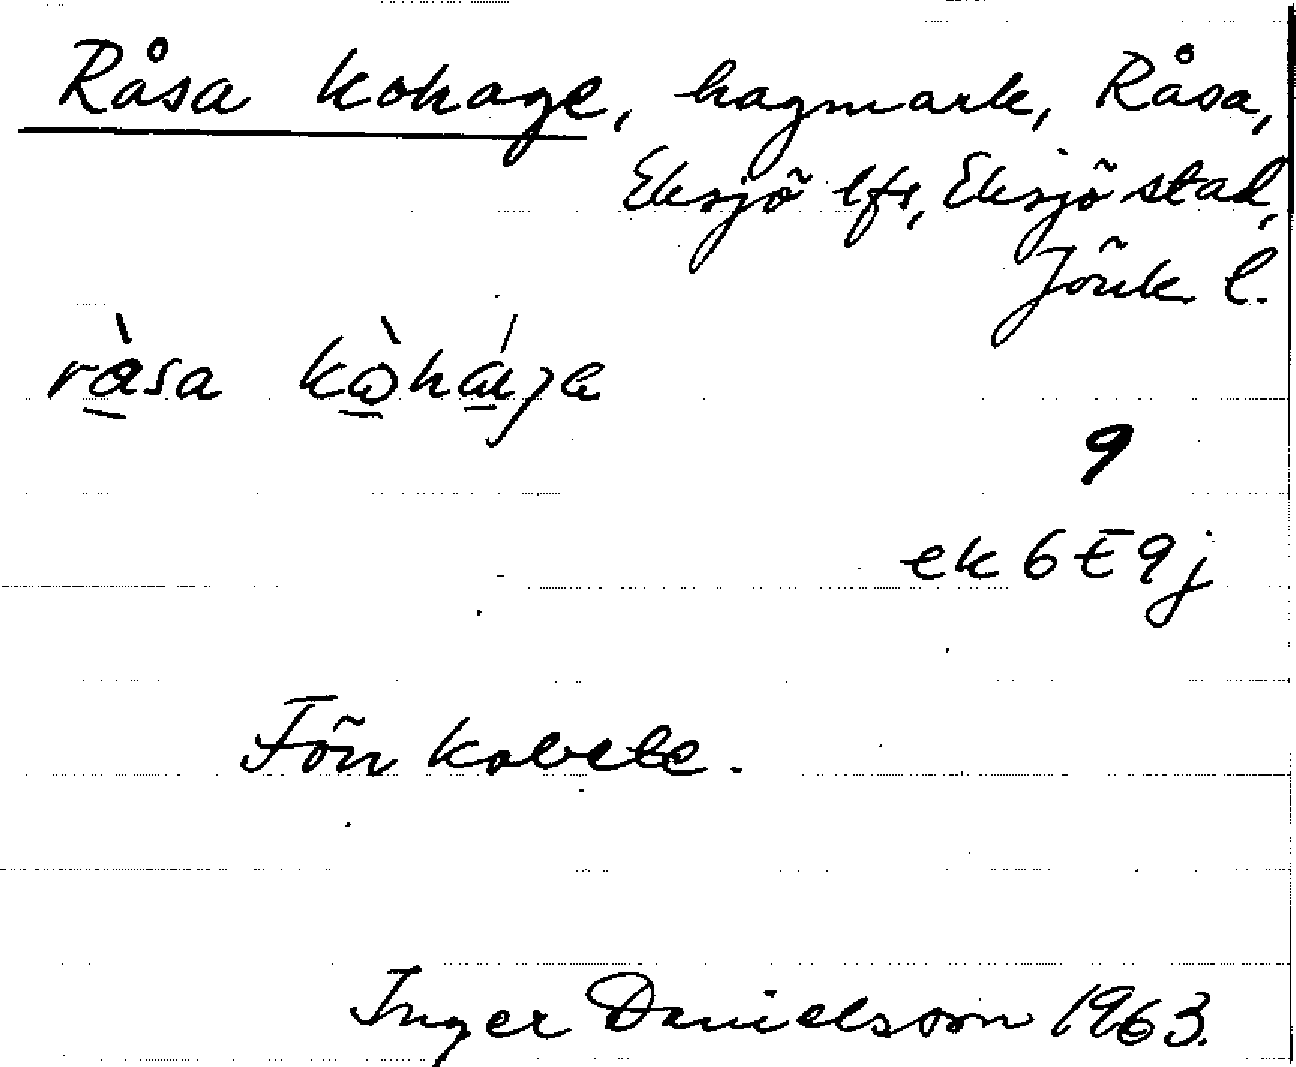 Råsa kohage, hagmark, Råsa,
Eksjö lfs, Eksjö stad,
Jönk l.
9
ek 6E9j
Förr kobete.
Inger Danielsson 1963.